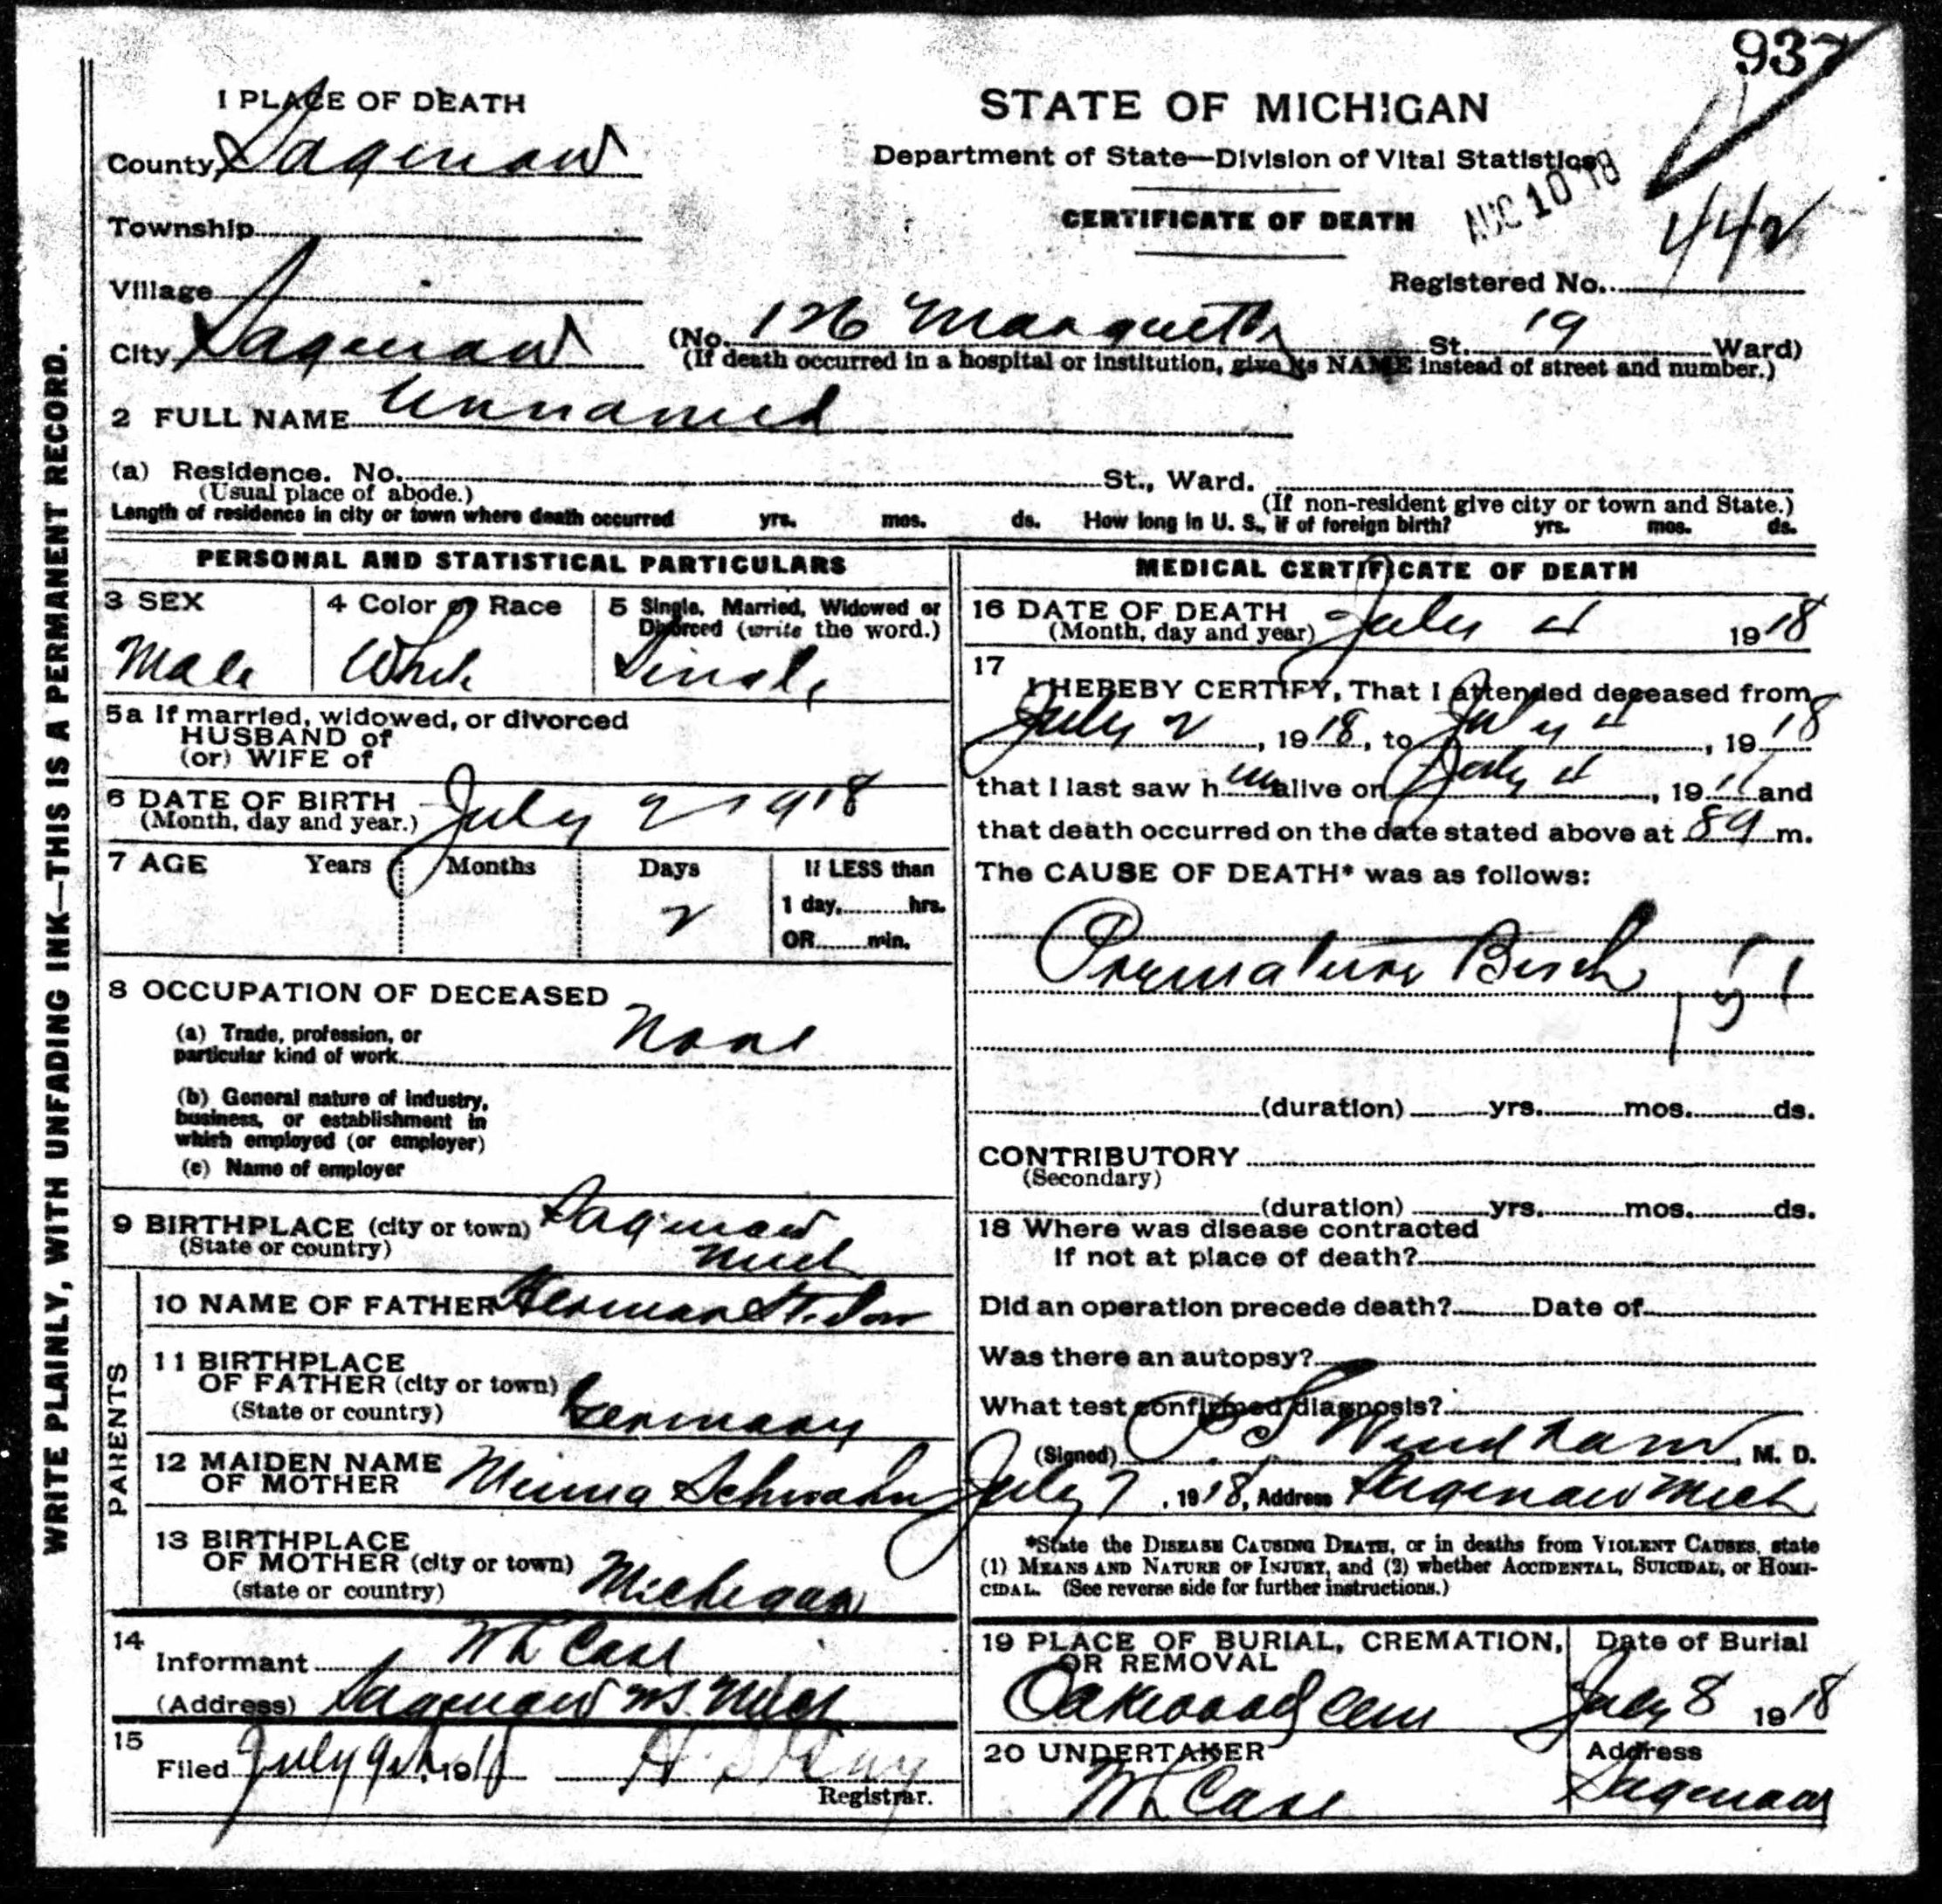 937
1 PLACE OF DEATH
STATE OF MICHIGAN
County Saginaw
Department of State—Division of Vital Statistics
AUG 10 18
Township
CERTIFICATE OF DEATH
442
Village
Registered No.
City Saginaw (No. 126 Marquette St. 19 Ward)
(If death occurred in a hospital or institution, give its NAME instead of street and number.)
2 FULL NAME Unnamed
(a) Residence. No. St., Ward.
(Usual place of abode.) (If non-resident give city or town and State.)
Length of residence in city or town where death occurred yrs. mos. ds. How long in U. S., if of foreign birth? yrs. mos. ds.
PERSONAL AND STATISTICAL PARTICULARS
3 SEX 4 Color or Race 5 Single, Married, Widowed or
Divorced (write the word.)
Male White Single
5a If married, widowed, or divorced
HUSBAND of
(or) WIFE of
6 DATE OF BIRTH July 2 1918
(Month, day and year.)
7 AGE Years Months Days If LESS than
2 1 day, hrs.
OR min.
8 OCCUPATION OF DECEASED
None
(a) Trade, profession, or
particular kind of work
(b) General nature of industry,
business, or establishment in
which employed (or employer)
(c) Name of employer
9 BIRTHPLACE (city or town) Saginaw
(State or country) Mich
PARENTS
10 NAME OF FATHER Herman
11 BIRTHPLACE
OF FATHER (city or town)
(State or country) Germany
12 MAIDEN NAME
OF MOTHER Minna Schwahn
13 BIRTHPLACE
OF MOTHER (city or town)
(state or country) Michigan
14
Informant Wm L Case
(Address) Saginaw W.S. Mich
15
Filed July 9th, 1918
Registrar.
MEDICAL CERTIFICATE OF DEATH
16 DATE OF DEATH
(Month, day and year) July 4 1918
17
I HEREBY CERTIFY, That I attended deceased from
July 2, 1918, to July 4, 1918
that I last saw him alive on July 4, 191 and
that death occurred on the date stated above at 8 a m.
The CAUSE OF DEATH* was as follows:
Premature Birth
151
(duration) yrs. mos. ds.
CONTRIBUTORY
(Secondary)
(duration) yrs. mos. ds.
18 Where was disease contracted
if not at place of death?
Did an operation precede death? Date of
Was there an autopsy?
What test confirmed diagnosis?
(Signed) P S Windham, M. D.
July 7, 1918, Address Saginaw Mich
*State the DISEASE CAUSING DEATH, or in deaths from VIOLENT CAUSES, state
(1) MEANS AND NATURE OF INJURY, and (2) whether ACCIDENTAL, SUICIDAL, or HOMI-
CIDAL. (See reverse side for further instructions.)
19 PLACE OF BURIAL, CREMATION, Date of Burial
OR REMOVAL
Oakwood Cem July 8 1918
20 UNDERTAKER Address
Wm L Case Saginaw
WRITE PLAINLY, WITH UNFADING INK—THIS IS A PERMANENT RECORD.